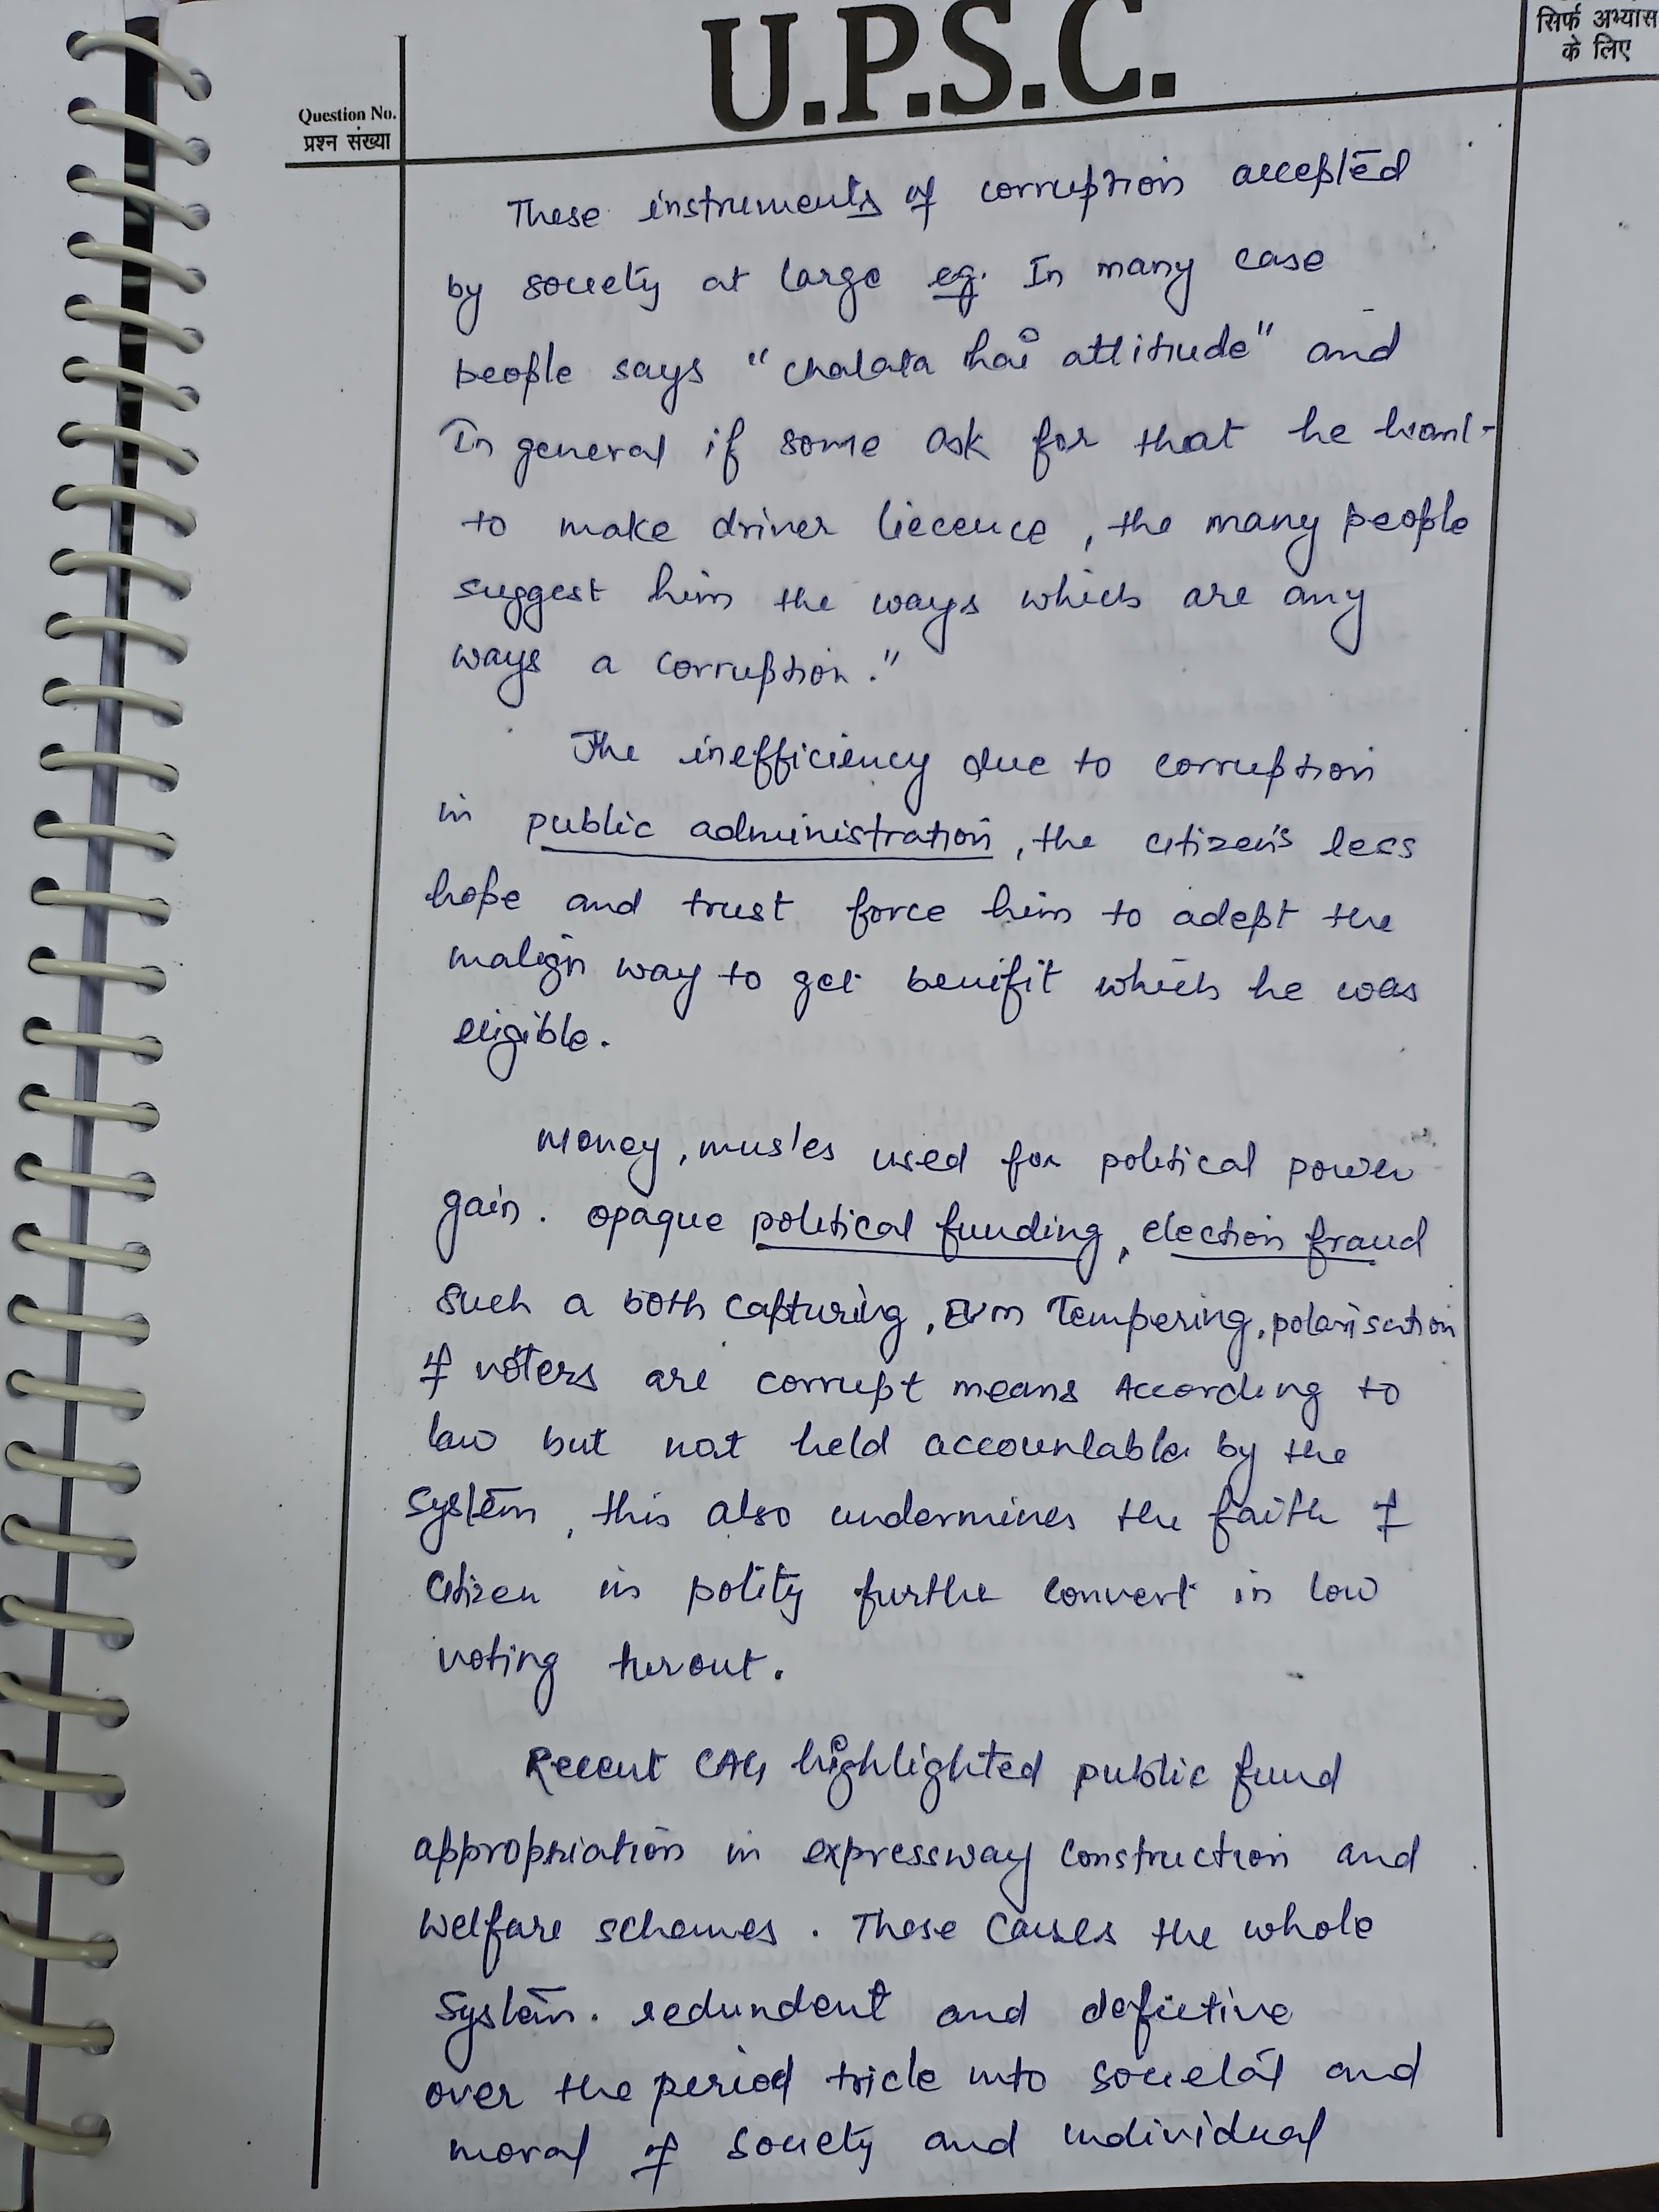 U.P.S.C.
सिर्फ अभ्यास
के लिए
Question No.
प्रश्न संख्या
These instruments of corruption accepted
by society at large eg. In many case
people says "chalata hai attitude" and
In general if some ask for that he want
to make driver liecence, the many people
suggest him the ways which are any
ways a corruption."
The inefficiency due to corruption
in public administration, the citizen's less
hope and trust force him to adept the
malign way to get benifit which he was
eligible.
Money, musles used for political power
gain. opaque political funding, election fraud
such a both capturing, EVM Tempering, polarisation
of voters are corrupt means According to
law but not held accountable by the
system, this also undermines the faith of
citizen in polity furthe convert in low
voting turout.
Recent CAG highlighted public fund
appropriation in expressway construction and
welfare schemes. These causes the whole
system. redundent and defictive
over the period tricle into societal and
moral of society and individual